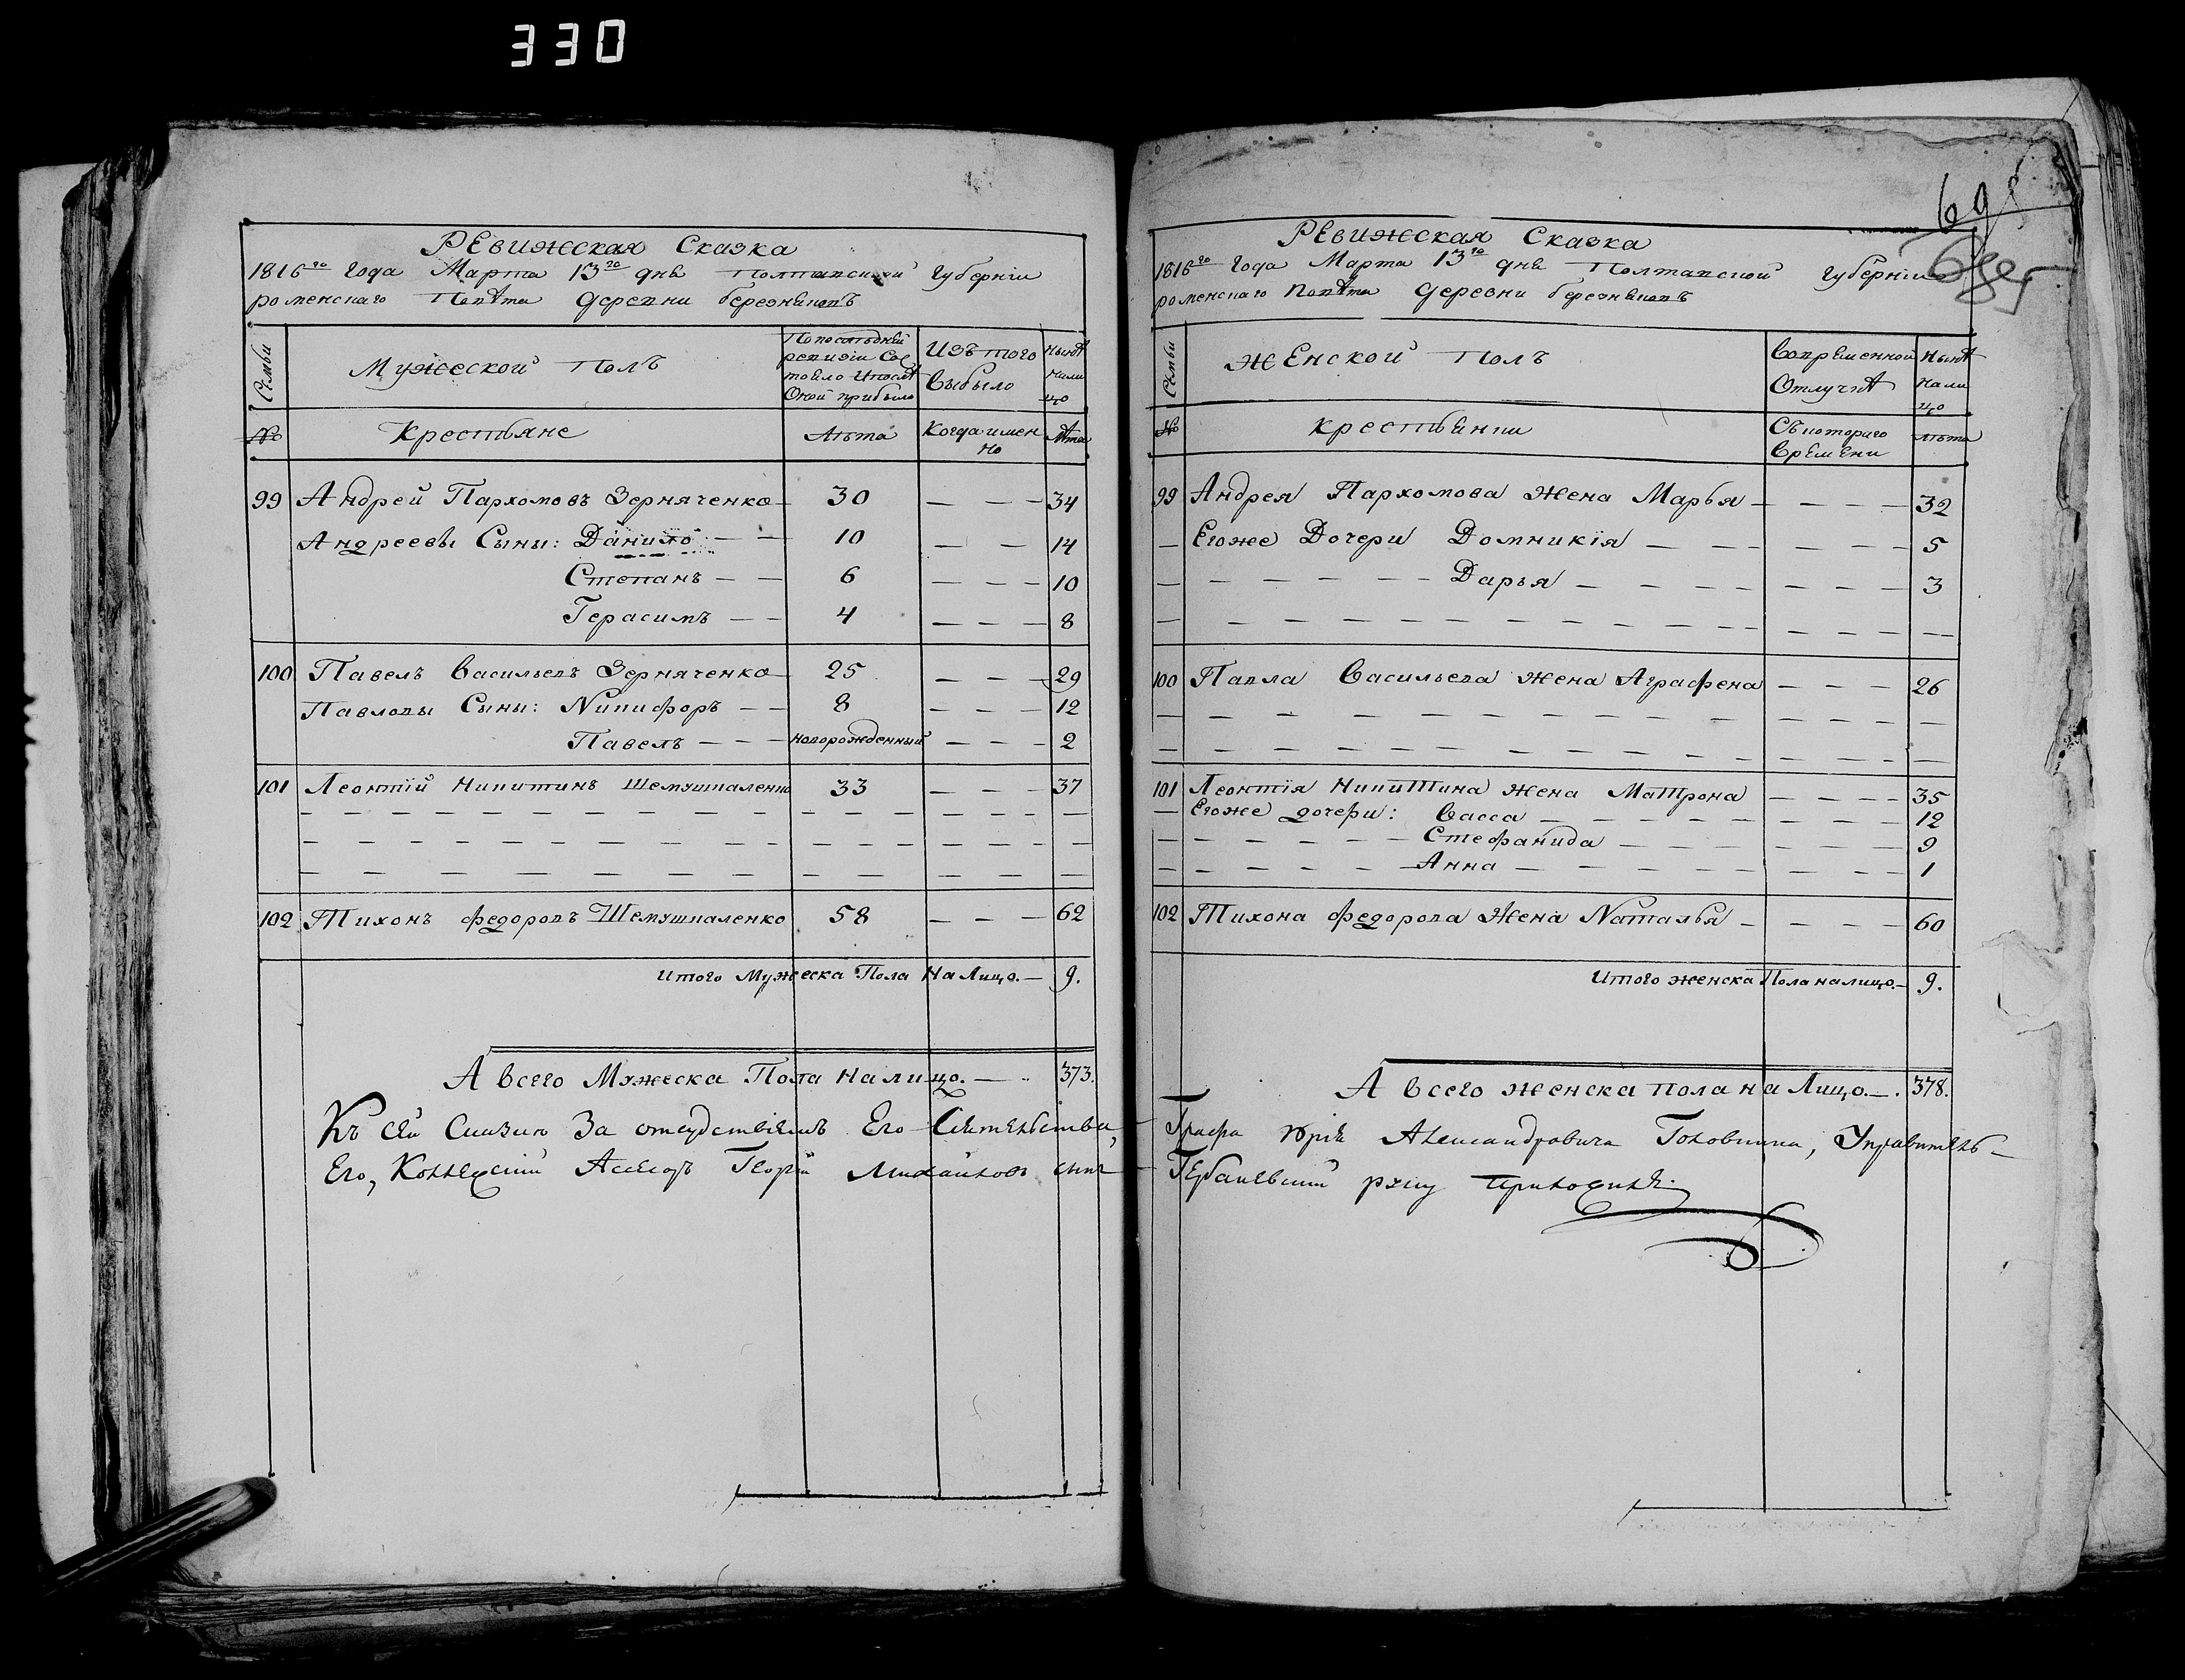 330
Ревижская Сказка
1816го Года Марта 13го дня Полтавской Губерніи
роменскаго Повѣта деревни березняковъ
Семьи
Мужеской Полъ
Попослѣдней
ревизіи Сос
тояло Ипослѣ
Оной прибыло
Изъ того
Выбыло
Нынѣ
Нали
цо
№
Крестьяне
Лѣта
Когда имен
но
Лѣта
99 Андрей Пархомовъ Зерняченко — 30 — — — 34
Андреевы Сыны: Данило — — 10 — — 14
Степанъ — — 6 — — — 10
Герасимъ — — 4 — — — 8
100 Павелъ Васильевъ Зерняченко — 25 — — — 29
Павловы Сыны: Никифоръ — — 8 — — — 12
Павелъ — — — новорожденный — — — 2
101 Леонтій Никитинъ Шемушкаленко 33 — — — 37
102 Тихонъ Федоровъ Шемушкаленко 58 — — — 62
Итого Мужеска Пола На Лицо. — 9.
А всего Мужеска Пола на лицо. — 373.
Къ сей Сказки За отсудствіемъ Его Сіятельства,
Его, Коллежскій Асесоръ Георгій Михайловъ сынъ
695
Ревижская Сказка
1816го Года Марта 13го дня Полтавской Губерніи
роменскаго Повѣта деревни березняковъ
Семьи
Женской Полъ
Вовременной
Отлучкѣ
Нынѣ
Нали
цо
№
крестьянки
Съкотораго
Времени
лѣта
99 Андрея Пархомова Жена Марья — — — — 32
— Егоже Дочери Домникія — — — — — — 5
— — — — — — — Дарья — — — — — — — 3
100 Павла Васильева Жена Аграфена — — — 26
101 Леонтія Никитина жена Матрона — — — — 35
— Егоже дочери: Васса — — — — — — — — 12
— — — — — — Стефанида — — — — — — 9
— — — — — — Анна — — — — — — — 1
102 Тихона Федорова Жена Наталья — — — — 60
Итого женска Пола налицо. — 9.
А всего женска пола на Лицо. — 378.
Графа Юрія Александровича Головкина, Управитель
руку приложилъ.